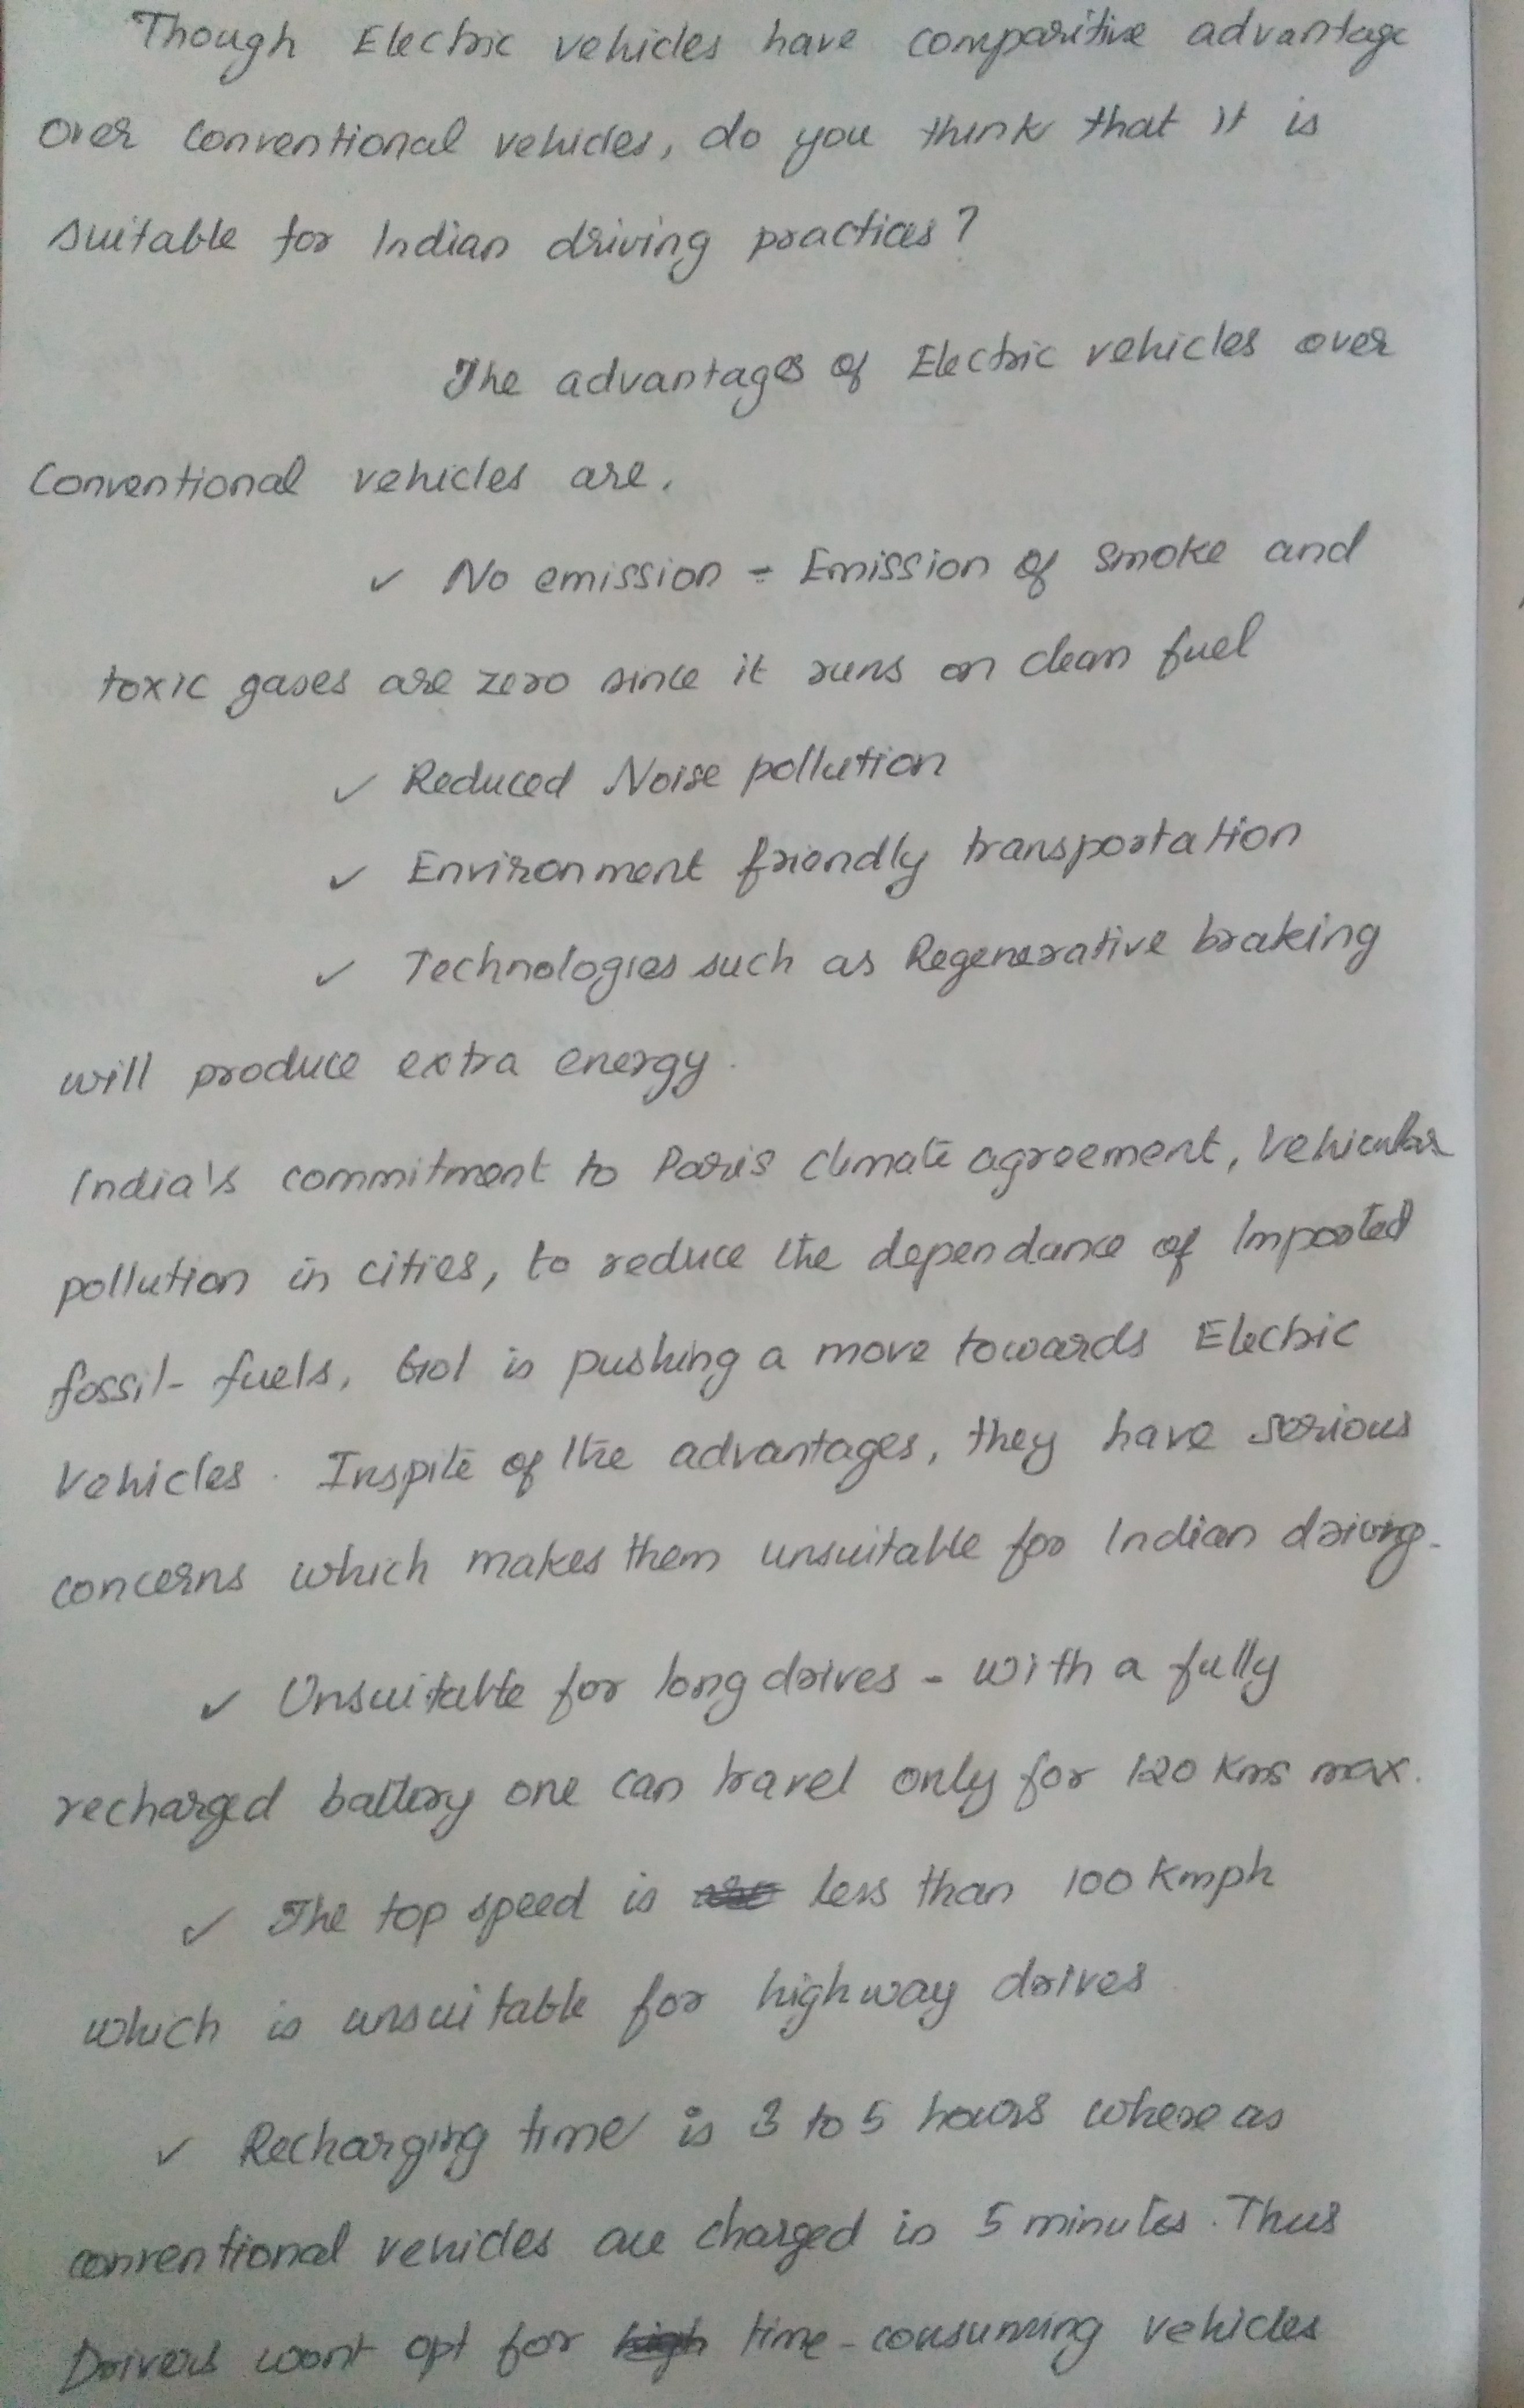 Though Electric vehicles have comparitive advantage
over conventional vehicles, do you think that it is
suitable for Indian driving practices?
The advantages of Electric vehicles over
Conventional vehicles are,
✓ No emission - Emission of smoke and
toxic gases are zero since it runs on clean fuel
✓ Reduced Noise pollution
✓ Environment friendly transportation
✓ Technologies such as Regenerative braking
will produce extra energy.
India's commitment to Paris climate agreement, Vehicular
pollution in cities, to reduce the dependance of Imported
fossil-fuels, GoI is pushing a move towards Electric
Vehicles. Inspite of the advantages, they have serious
concerns which makes them unsuitable for Indian driving.
✓ Unsuitable for long drives - with a fully
recharged battery one can travel only for 120 Kms max.
✓ The top speed is less than 100 Kmph
which is unsuitable for highway drives.
✓ Recharging time is 3 to 5 hours where as
conventional vehicles are charged in 5 minutes. Thus
Drivers wont opt for time-consuming vehicles